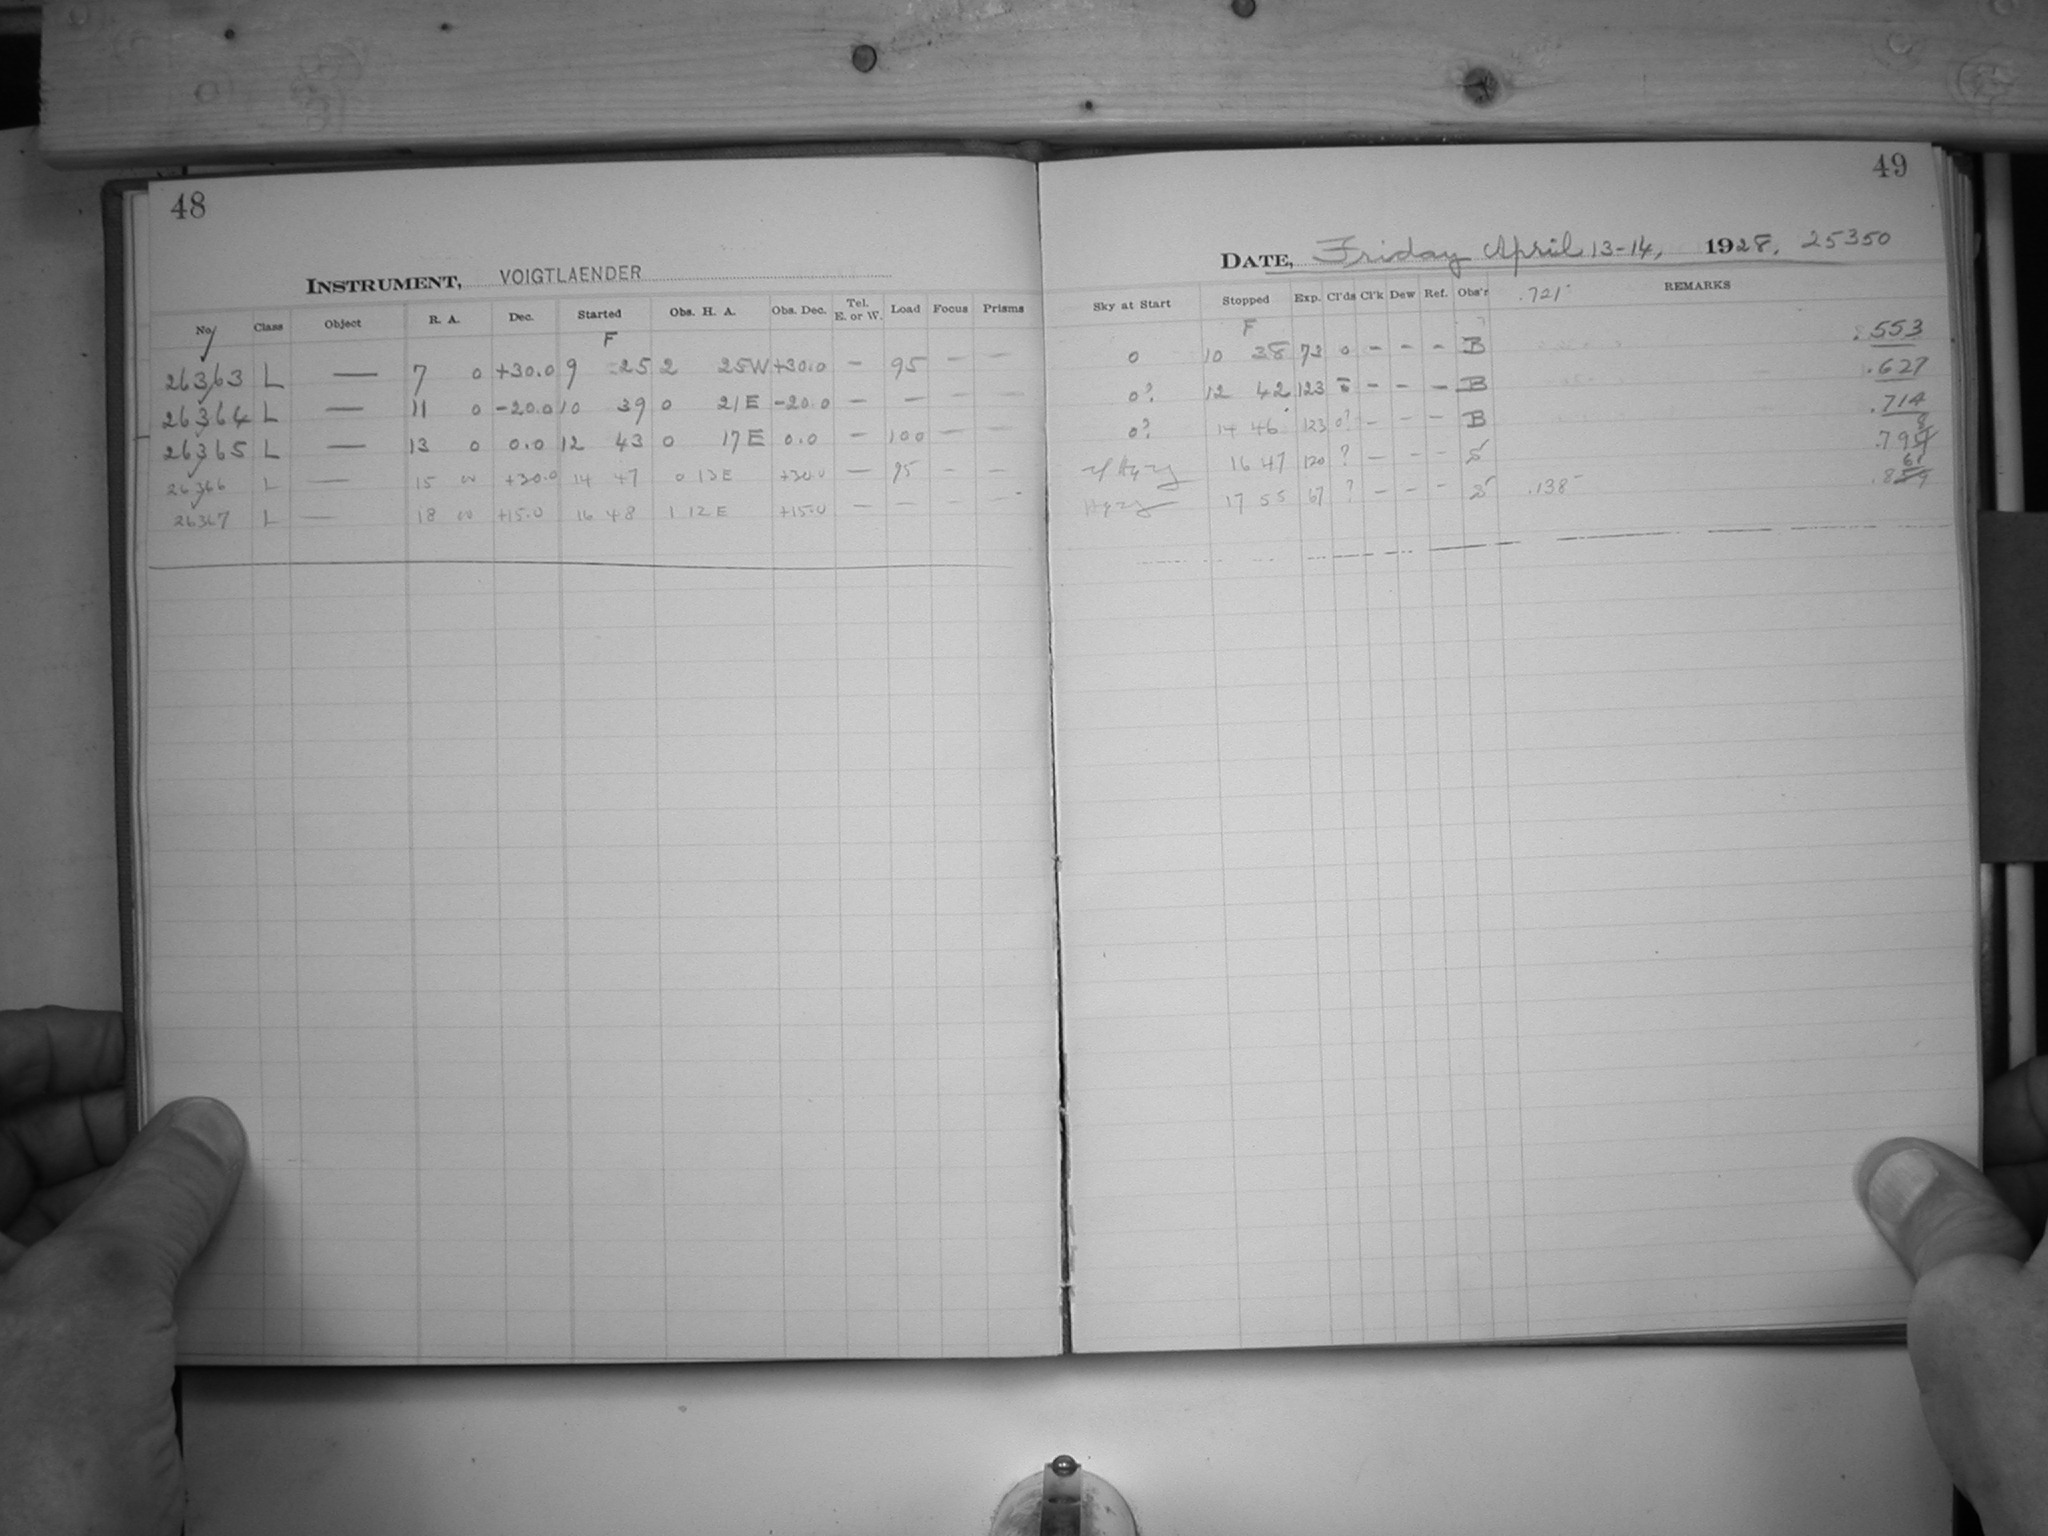 48
INSTRUMENT, VOIGTLAENDER
No. Class Object R. A. Dec. Started Obs. H. A. Obs. Dec. Tel. E. or W. Load Focus Prisms
F
26363 L — 7 0 +30.0 9 25 2 25W +30.0 — 95 — —
26364 L — 11 0 -20.0 10 39 0 21E -20.0 — — — —
26365 L — 13 0 0.0 12 43 0 17E 0.0 — 100 — —
26366 L — 15 00 +30.0 14 47 0 13E +30.0 — 95 — —
26367 L — 18 00 +15.0 16 48 1 12E +15.0 — — — —
49
DATE, Friday April 13-14, 1928, 25350
Sky at Start Stopped Exp. Cl'ds Cl'k Dew Ref. Obs'r .721 REMARKS
F
0 10 38 73 0 - - - B .553
0? 12 42 123 0 - - - B .627
0? 14 46 123 0? - - - B .714
16 47 120 ? - - - S .798
Hazy 17 55 67 ? - - - S .138 .861